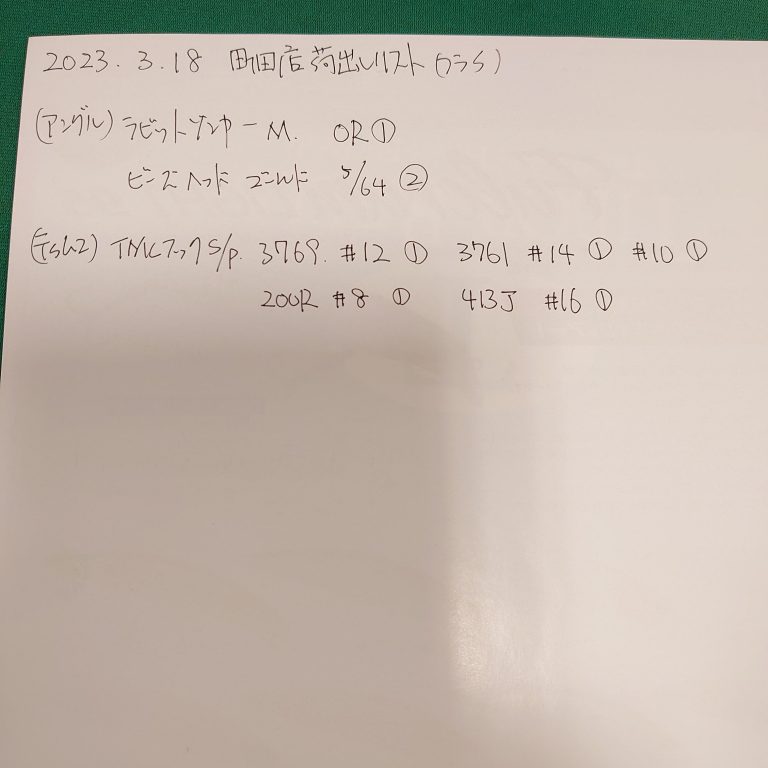 2023.3.18 町田店荷出しリスト(ウラS)
(アングル) ラビットゾンカーM. OR①
ビーズヘッド ゴールド 5/64 ②
TMCフックS/p. 3769. #12 ① 3761 #14 ① #10 ①
200R #8 ① 413J #16 ①